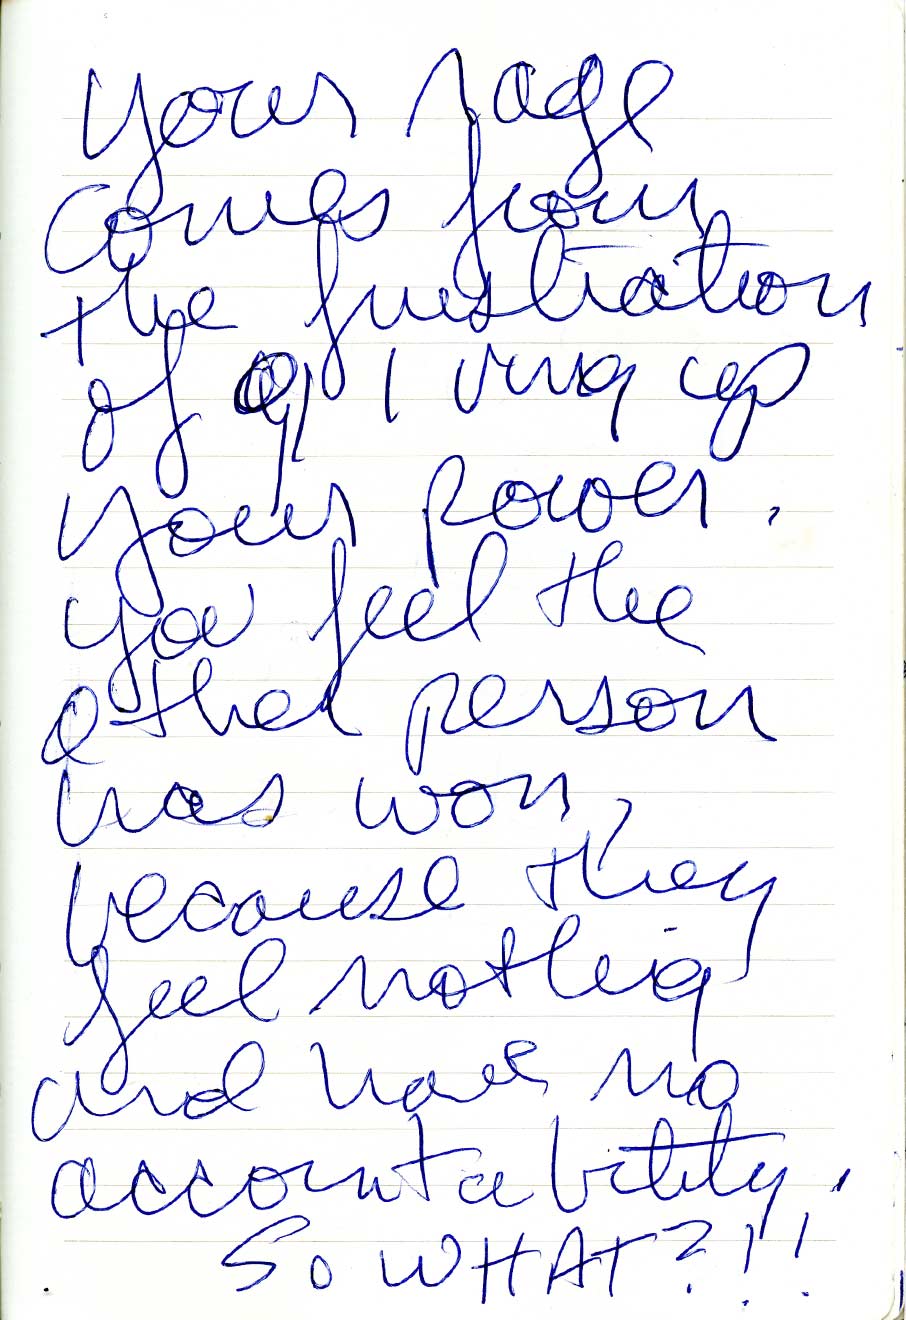 your rage
comes from
the frustration
of giving up
your power.
you feel the
other person
has won,
because they
feel nothing
and have no
accountability.
SO WHAT?!!